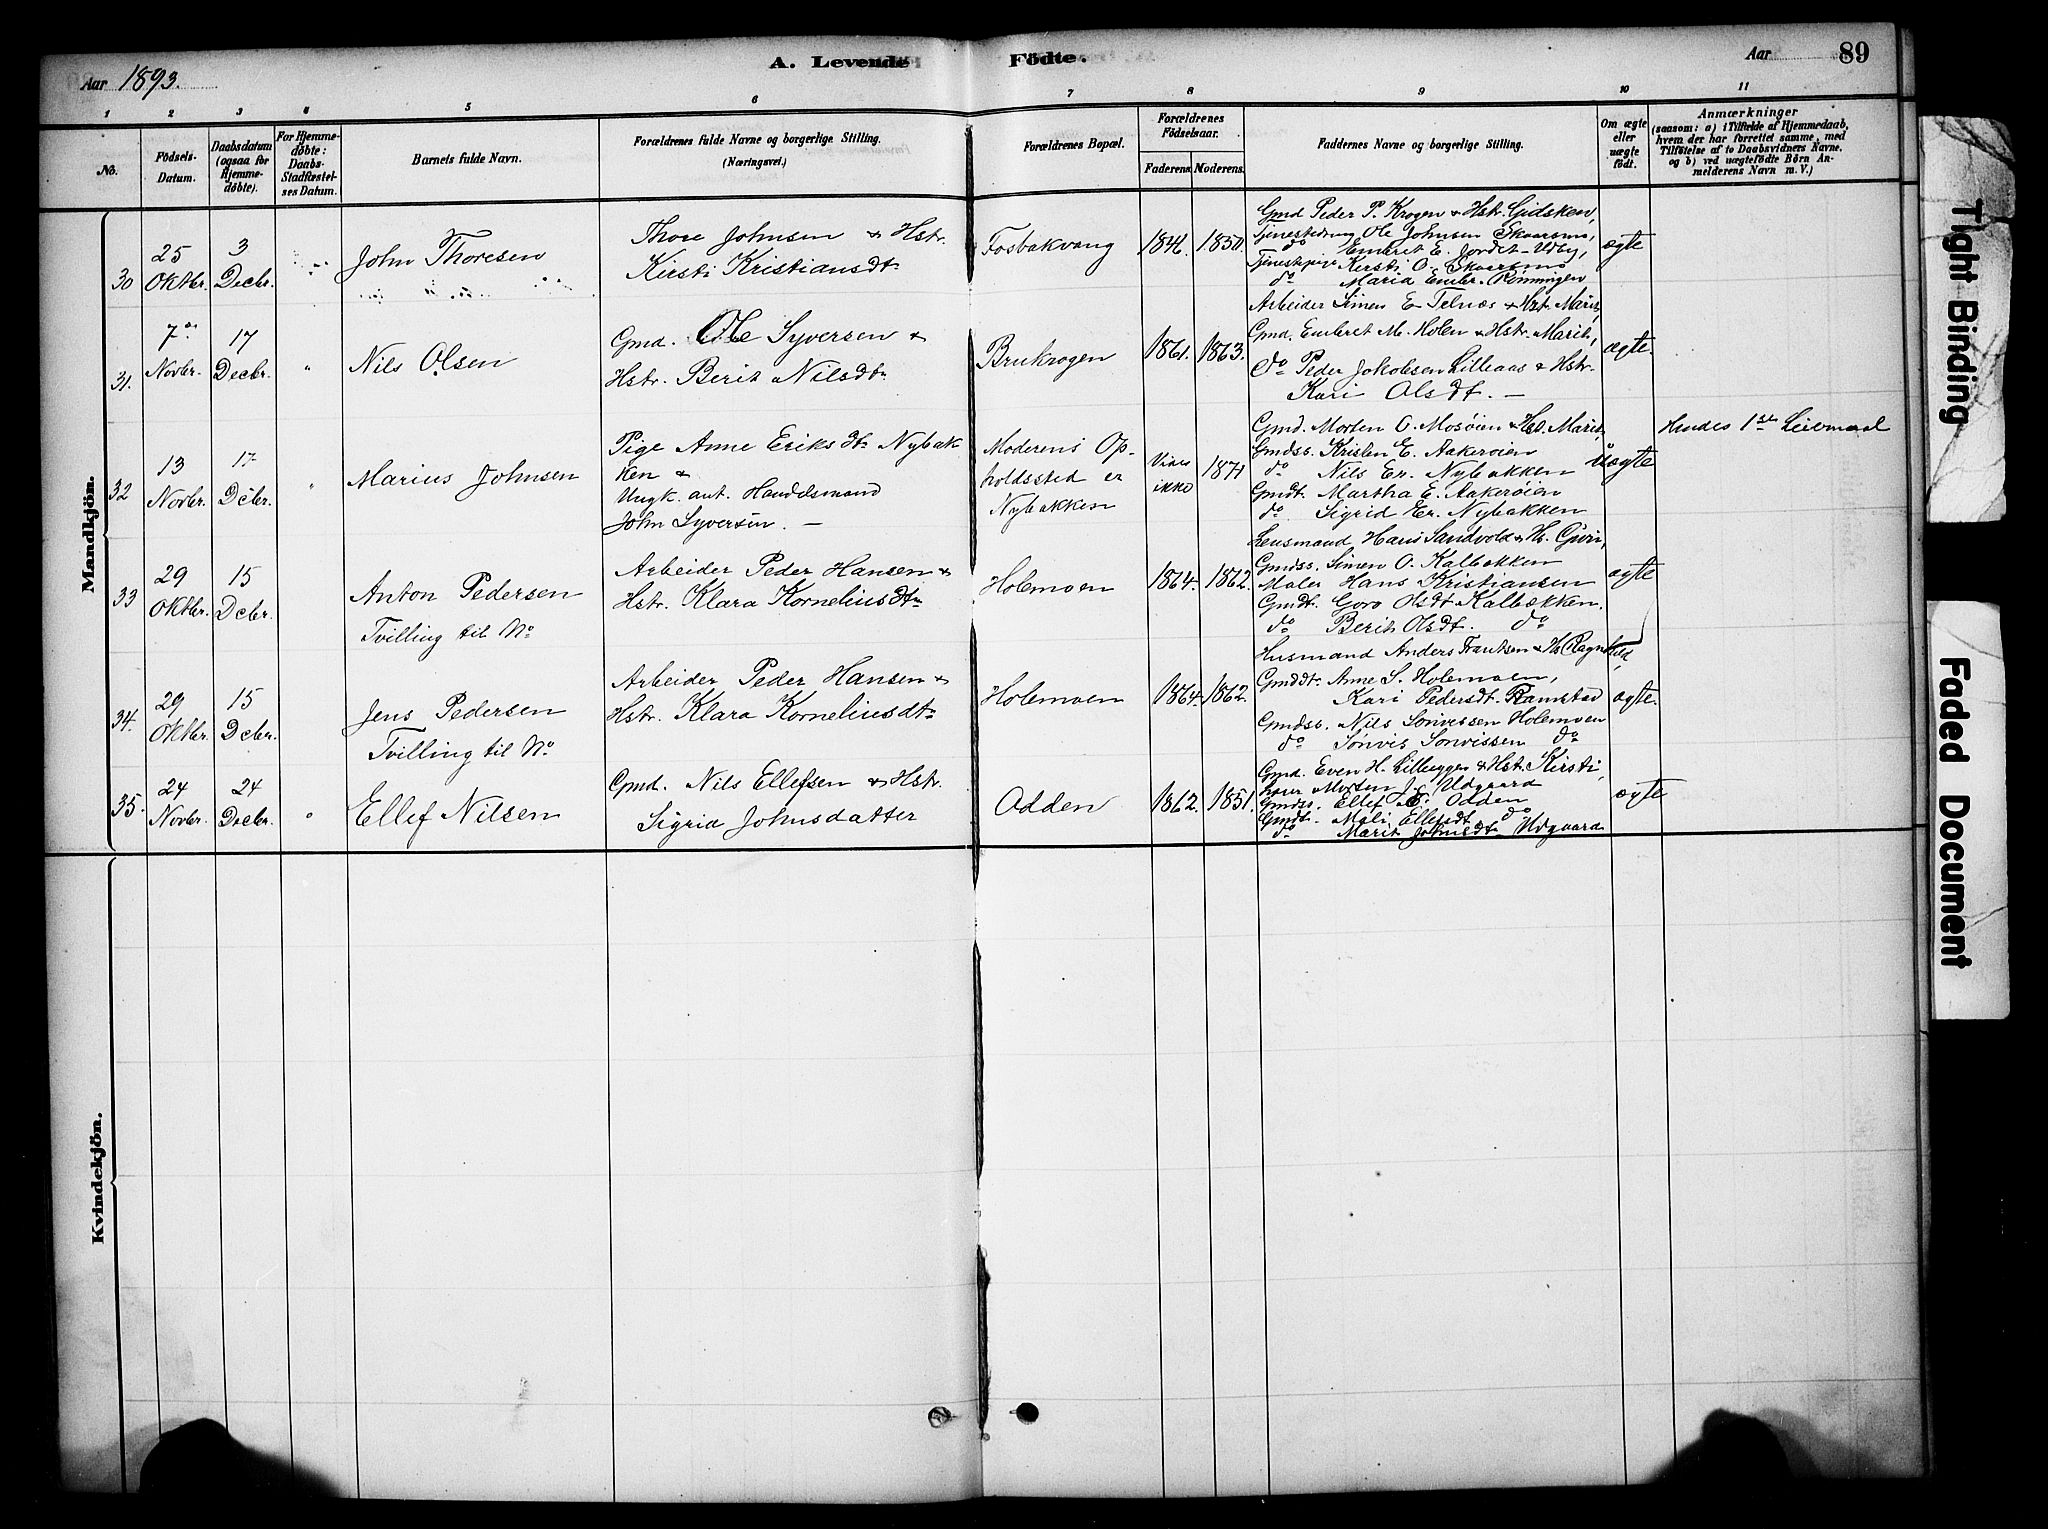 Aar 1893.
A. Levende Födte.
Aar 89
1 2 3 4 5 6 7 8 9 10 11
No.
Födsels-
Datum.
Daabsdatum
(ogsaa for
Hjemme-
döbte).
For Hjemme-
döbte:
Daabs-
Stadfæstel-
ses Datum.
Barnets fulde Navn.
Forældrenes fulde Navne og borgerlige Stilling.
(Næringsvei.)
Forældrenes Bopæl.
Forældrenes
Födselsaar.
Faderens. Moderens.
Faddernes Navne og borgerlige Stilling.
Om ægte
eller
uægte
födt.
Anmærkninger
(saasom: a) i Tilfælde af Hjemmedaab,
hvem der har forrettet samme, med
Tilföielse af to Daabsvidners Navne,
og b) ved uægtefödte Börn An-
melderens Navn m. V.)
Mandkjön.
30
25
Oktbr.
3
Decbr.
John Thoresen
Thore Johnsen & Hstr.
Kirsti Kristiansdtr
Fosbakvang
1846. 1850.
Gmd Peder P. Krogen & Hstr. Gidsken,
Tjenestedreng Ole Johnsen Skaarsmo,
do Embret E. Jordet Udby,
Tjenestepige Kirsti O. Skaarsmo
do Marid Embr. Rönningen
ægte
31.
7de
Novbr.
17
Decbr.
"
Nils Olsen
Gmd. Ole Syversen &
Hstr. Berit Nilsdtr
Brukrogen
1861. 1863.
Arbeider Simen E Telnæs & Hst. Marit,
Gmd. Embret M. Holen & Hstr. Marit,
do Peder Jakobsen Lilleaas & Hstr.
Kari Olsdt. —
ægte.
32
13
Novbr.
17
Dcbr.
"
Marius Johnsen
Pige Anne Eriksdtr Nybak
ken &
Ungk. ant. Handelsmand
John Syversen. —
Moderens Op-
holdssted er
Nybakken
Vides
ikke
1871
Gmd. Morten O. Mosöien & Hs. Marit,
Gmdss. Kristen E. Aakeröien
do Nils Er. Nybakken
Gmdt. Martha E. Aakeröien
do Sigrid Er. Nybakken
uægte
Hendes 1ste Leiermaal
33
29
Oktbr.
15
Dcbr.
Anton Pedersen
Tvilling til No
Arbeider Peder Hansen &
Hstr. Klara Korneliusdtr
Holemoen
1864. 1862.
Lensmand Hans Sandvold & Hs. Guri,
Gmdss. Simen O. Kalbækken
Maler Hans Kristiansen
Gmdt. Goro Olsdt Kalbækken.
do Berit Olsdt. do
ægte
34.
29
Oktbr.
15
Dcbr.
Jens Pedersen
Tvilling til No
Arbeider Peder Hansen &
Hstr. Klara Korneliusdtr
Holemoen
1864. 1862.
Husmand Anders Frantsen & Hs. Ragnhild,
Gmddt. Anne S. Holemoen,
Kari Pedersdt. Ramstad
Gmdss. Nils Sörvissen Holemoen
do Sörvis Sörvissen do
ægte.
35.
24
Novbr.
24
Decbr.
"
Ellef Nilsen
Gmd. Nils Ellefsen & Hstr.
Sigrid Johnsdatter
Odden
1862. 1851.
Gmd. Even H. Lilleeggen & Hst. Kirsti,
Morten J. Udgaard
Gmdss. Ellef Odden
Gmdt. Mali Ellefsdt do
do Marit Johnsdt Udgaard
ægte
Kvindekjön.
Tight Binding
Faded Document